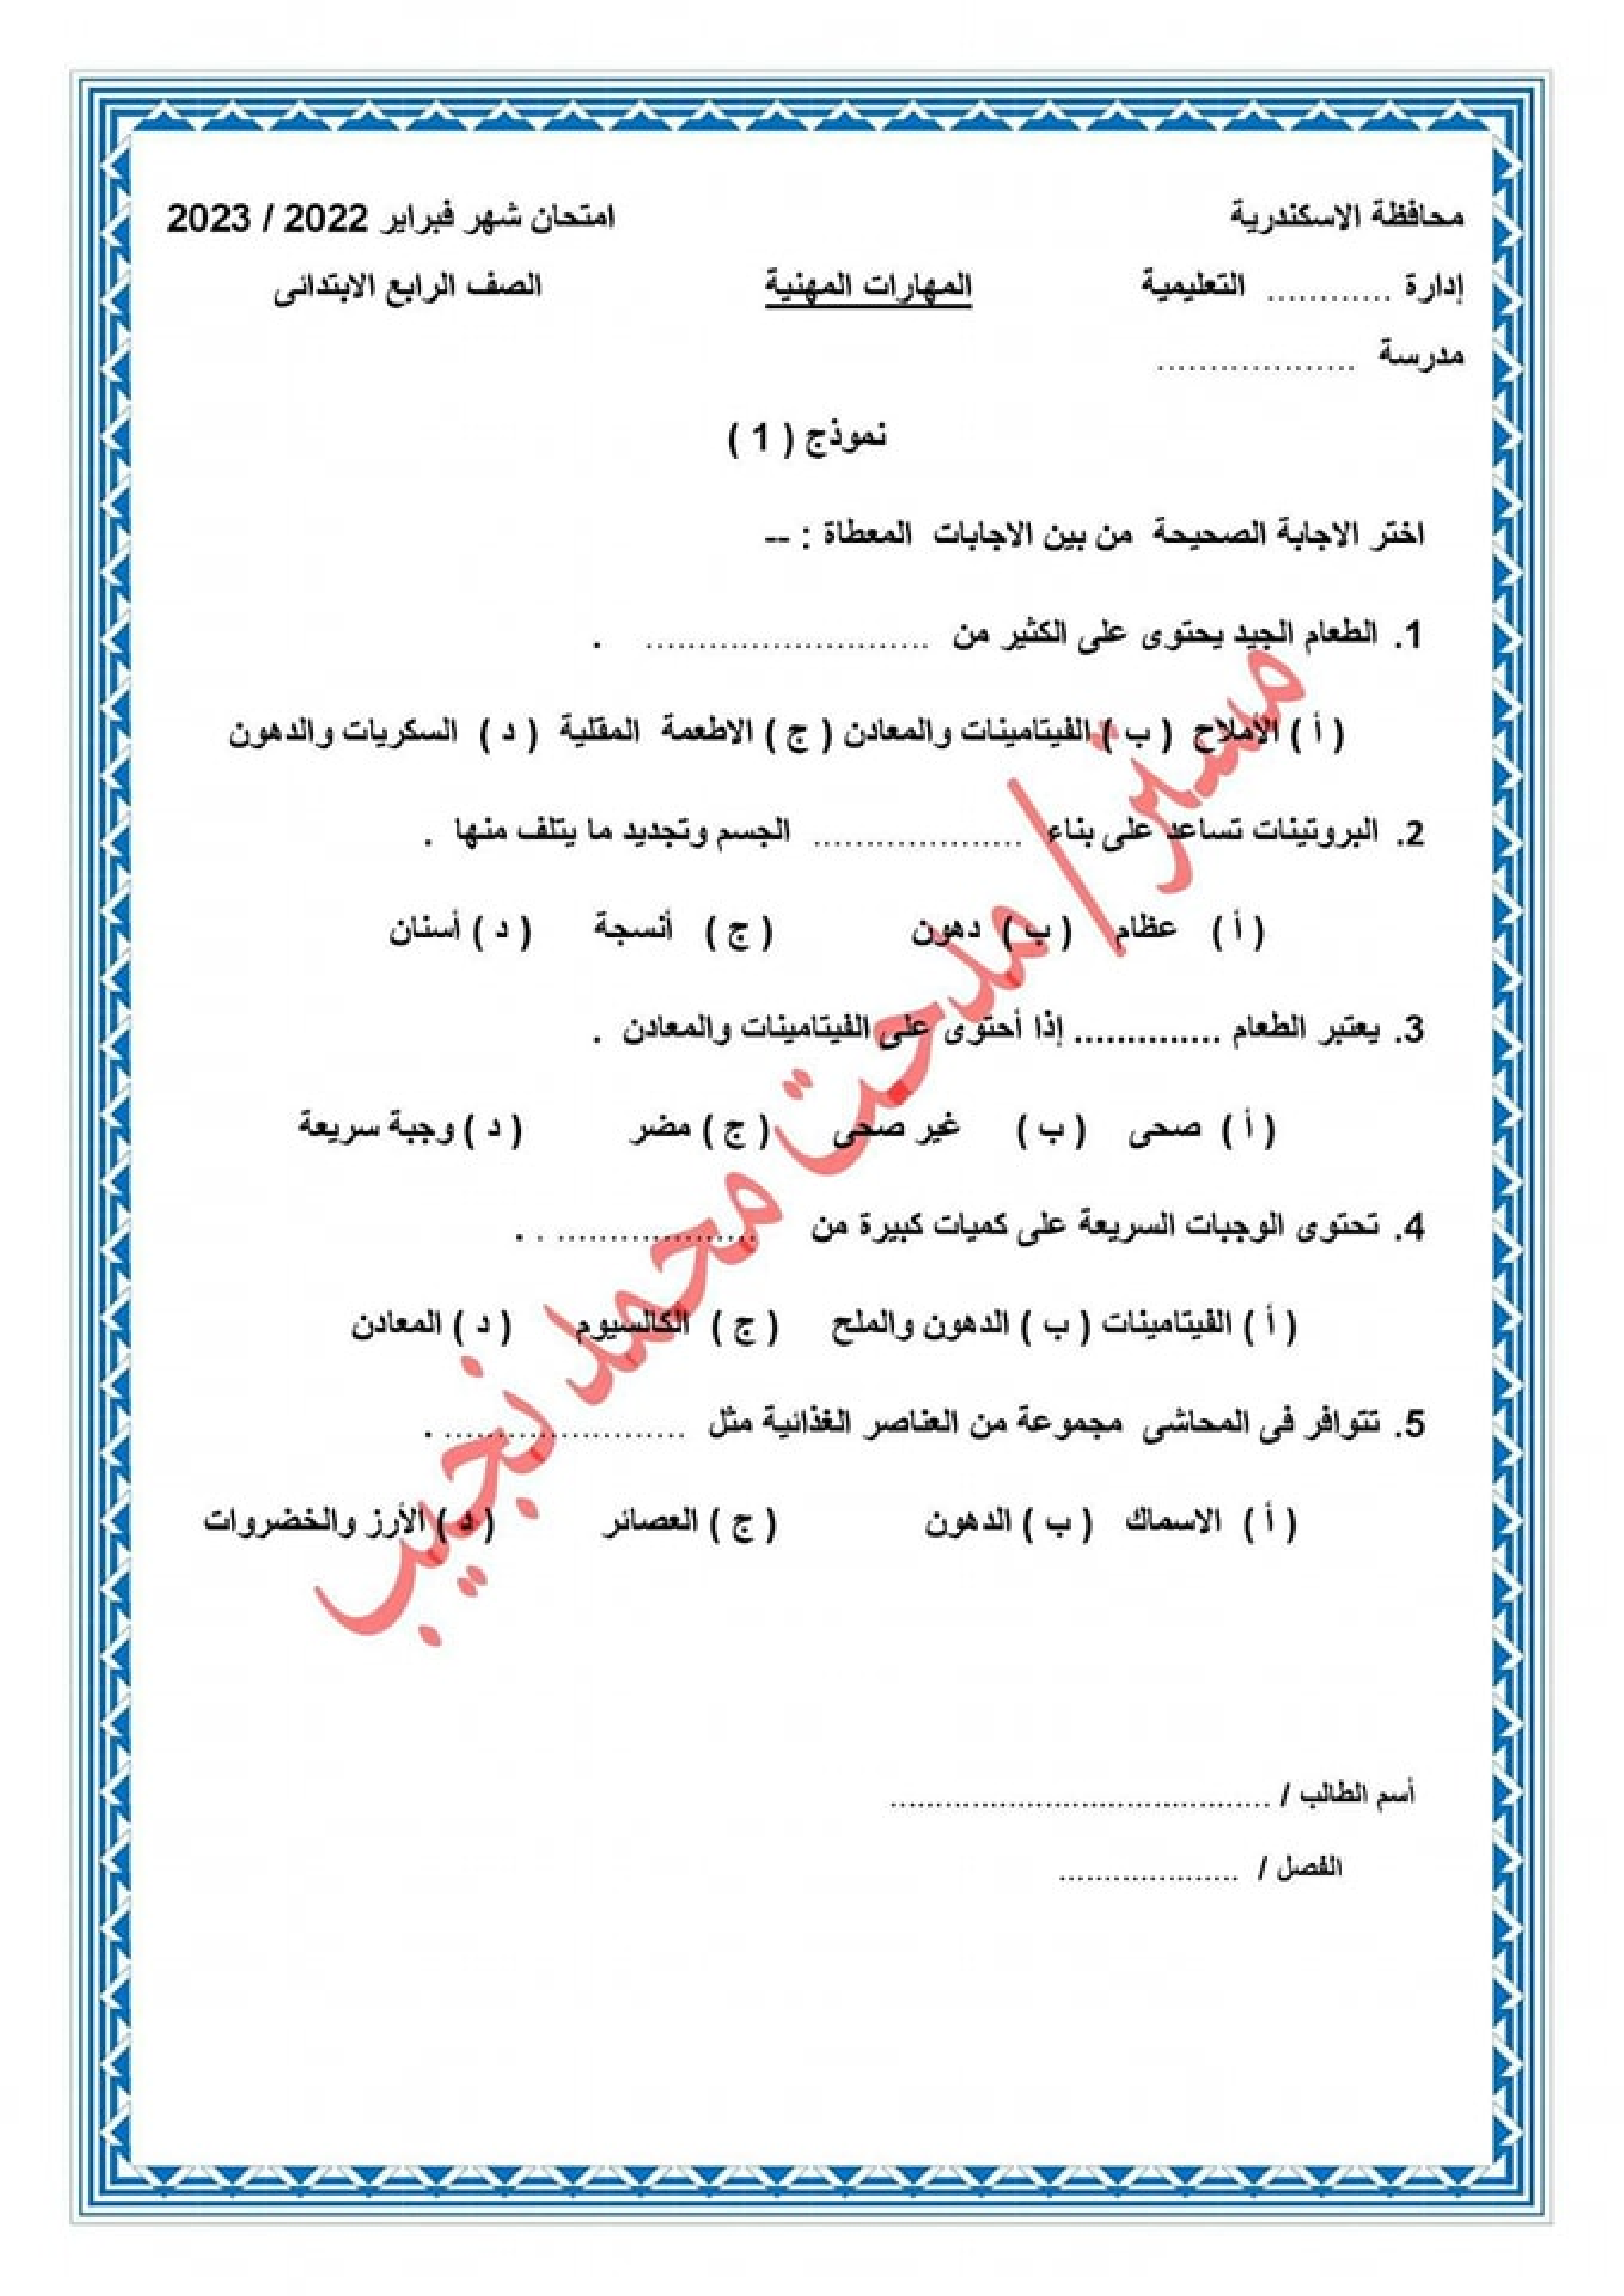 محافظة الاسكندرية امتحان شهر فبراير 2022 / 2023
إدارة ............ التعليمية المهارات المهنية الصف الرابع الابتدائى
مدرسة ...................
نموذج ( 1 )
اختر الاجابة الصحيحة من بين الاجابات المعطاة : --
1. الطعام الجيد يحتوى على الكثير من ........................... .
( أ ) الأملاح ( ب ) الفيتامينات والمعادن ( ج ) الاطعمة المقلية ( د ) السكريات والدهون
2. البروتينات تساعد على بناء .................... الجسم وتجديد ما يتلف منها .
( أ ) عظام ( ب ) دهون ( ج ) أنسجة ( د ) أسنان
3. يعتبر الطعام .............. إذا أحتوى على الفيتامينات والمعادن .
( أ ) صحى ( ب ) غير صحى ( ج ) مضر ( د ) وجبة سريعة
4. تحتوى الوجبات السريعة على كميات كبيرة من ................... . .
( أ ) الفيتامينات ( ب ) الدهون والملح ( ج ) الكالسيوم ( د ) المعادن
5. تتوافر فى المحاشى مجموعة من العناصر الغذائية مثل ....................... .
( أ ) الاسماك ( ب ) الدهون ( ج ) العصائر ( د ) الأرز والخضروات
مستر / مدحت محمد نجيب
أسم الطالب / ..........................................
الفصل / ....................